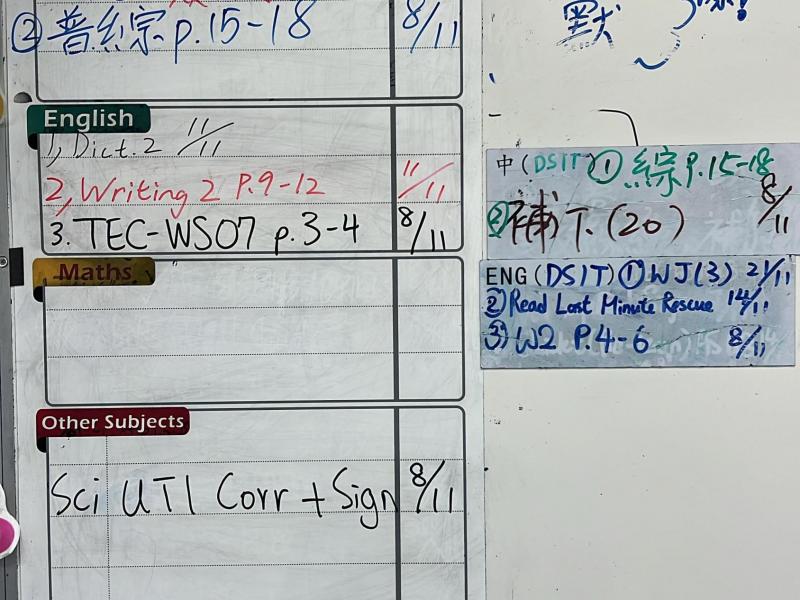 ② 普綜 p.15-18 8/11
默
English
1, Dict. 2 11/11
2, Writing 2 P.9-12 11/11
3. TEC-WS07 p.3-4 8/11
Maths
Other Subjects
Sci UT1 Corr + Sign 8/11
中(DSIT) ① 綜 P.15-18 8/11
② 補下(20)
ENG (DSIT) ① WJ(3) 21/11
② Read Last Minute Rescue 14/11
③ W2 P.4-6 8/11